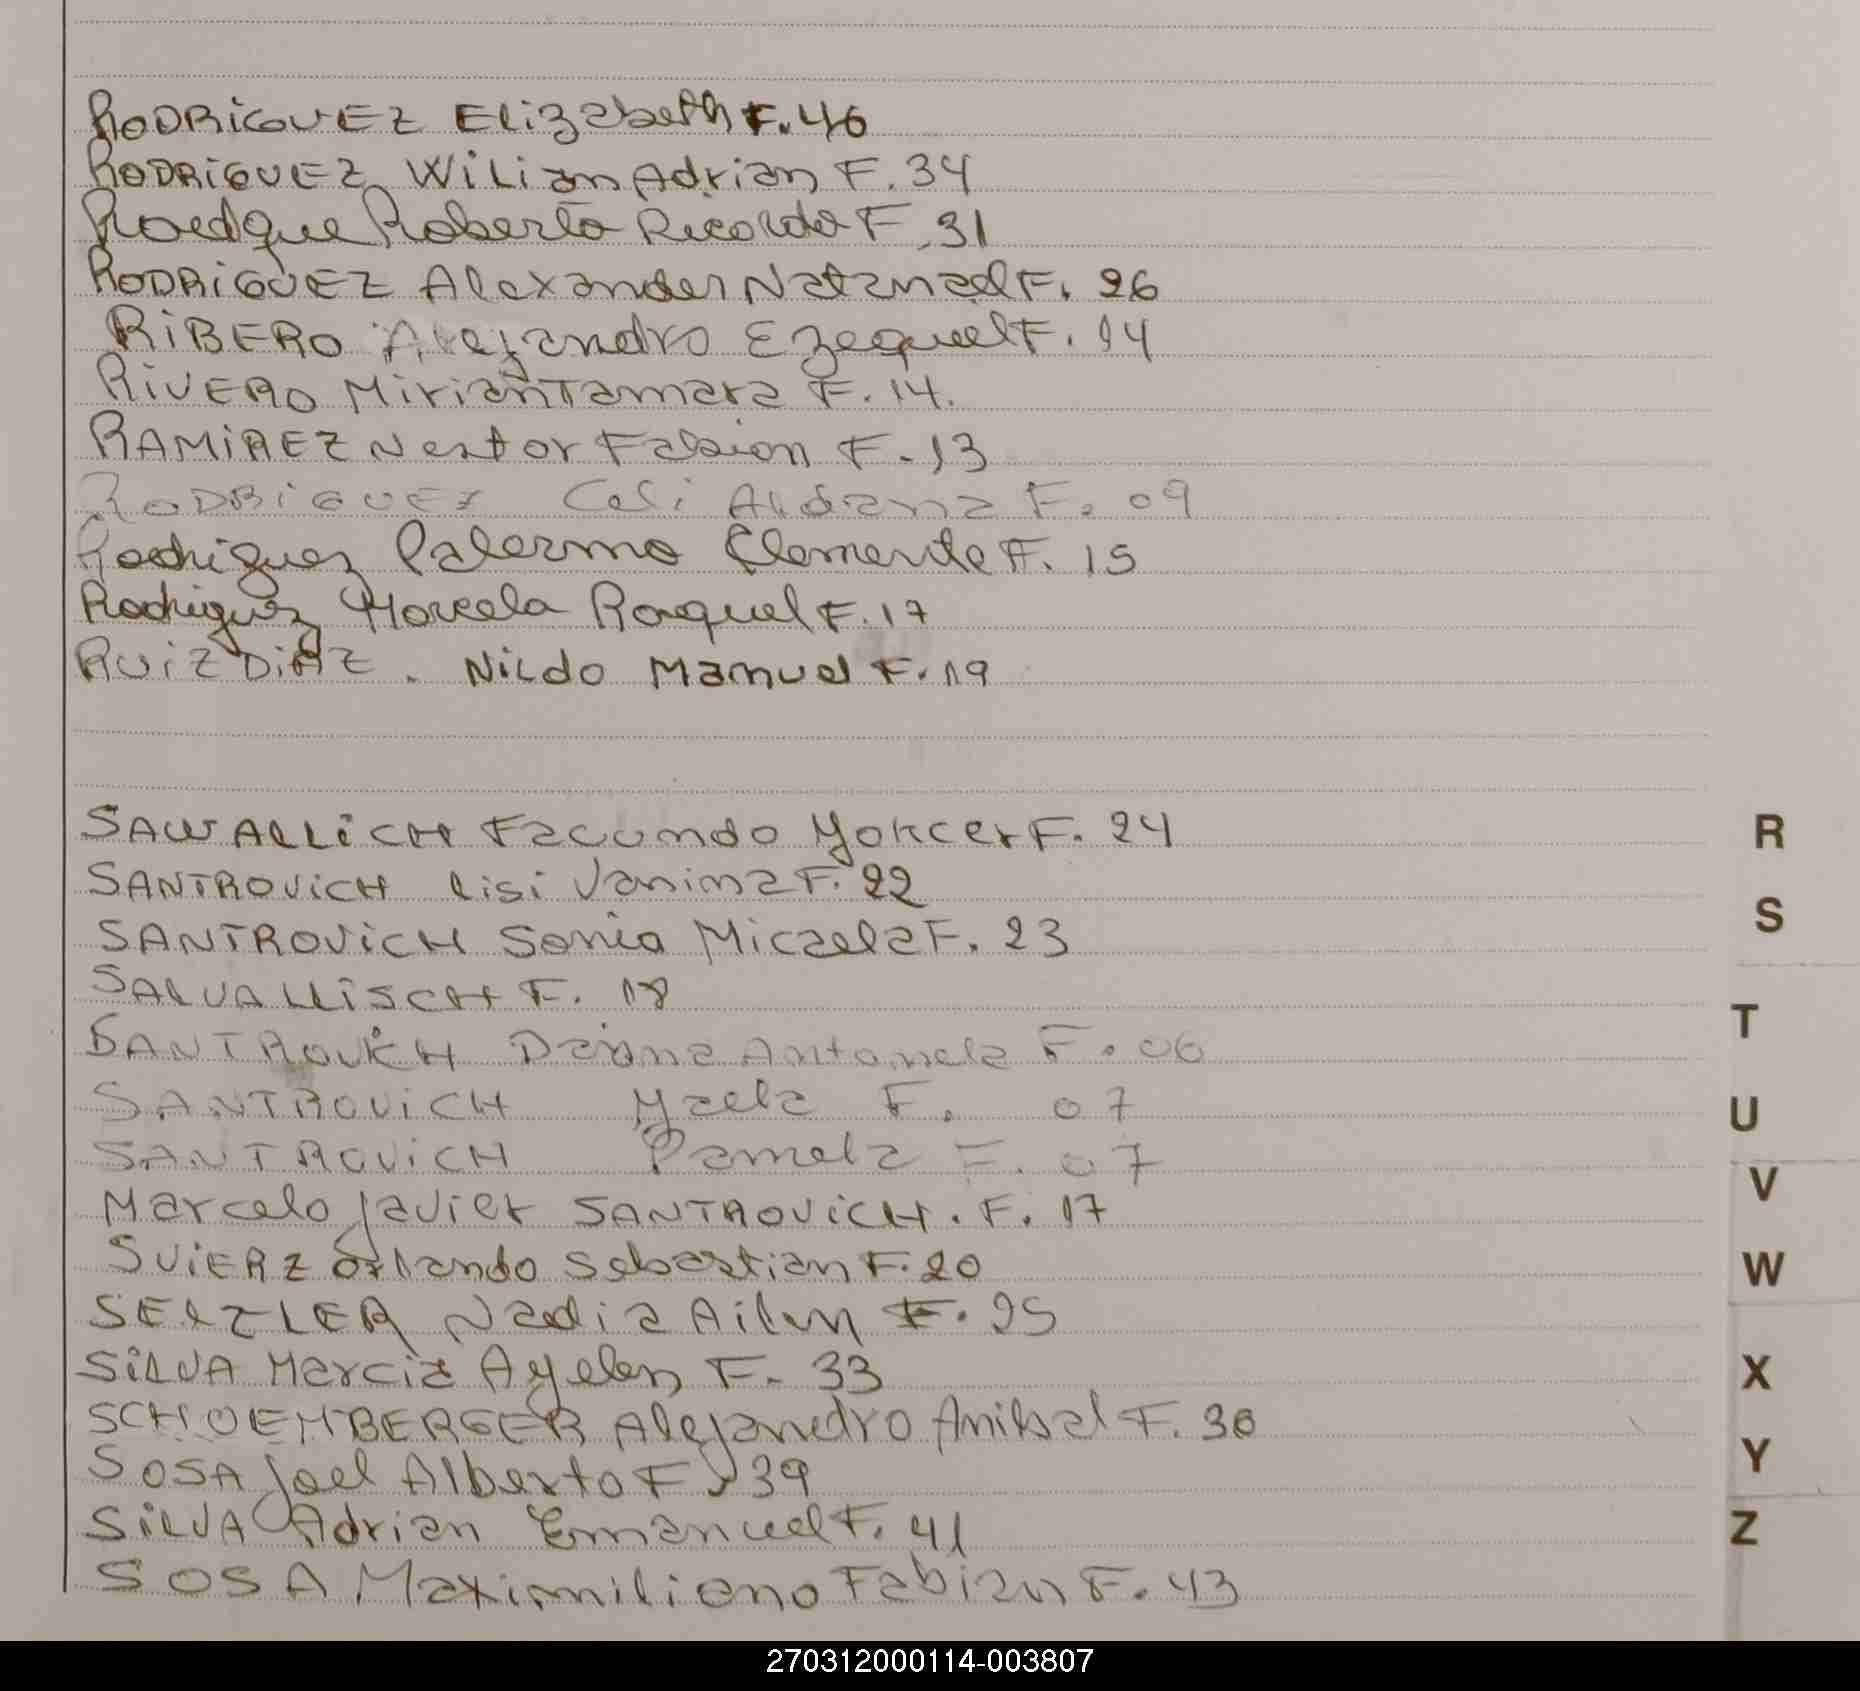 RODRiGUEZ Elizabeth F. 46
RODRiGUEZ Wilian Adrian F. 34
Roberto Ricardo F. 31
RODRiGUEZ Alexander Natanael F. 26
RiBERO Alejandro Ezequiel F. 14
RiVERO Mirian Tamara F. 14.
RAMiREZ Nestor Fabian F. 13
RODRiGUEZ Celi Aldana F. 09
Rodriguez Palermo Clemente F. 15
Rodriguez Marcela Raquel F. 17
RUiZ DiAZ. Nildo Manuel F. 19
SAWALLiCH Facundo F. 24
SANTROViCH Lisi Vanina F. 22
SANTROViCH Sonia Micaela F. 23
SALVALLiSCH F. 18
SANTROViCH Daiana Antonela F. 06
SANTROViCH Yaela F. 07
SANTROViCH Pamela F. 07
Marcelo Javier SANTROViCH. F. 17
SViERZ Orlando Sebastian F. 20
SELZLER Nadia Ailen F. 25
SiLVA Marcia Ayelen F. 33
SCHOEMBERGER Alejandro Anibal F. 30
SOSA Joel Alberto F. 39
SiLVA Adrian Emanuel F. 41
SOSA Maximiliano Fabian F. 43
R
S
T
U
V
W
X
Y
Z
270312000114-003807